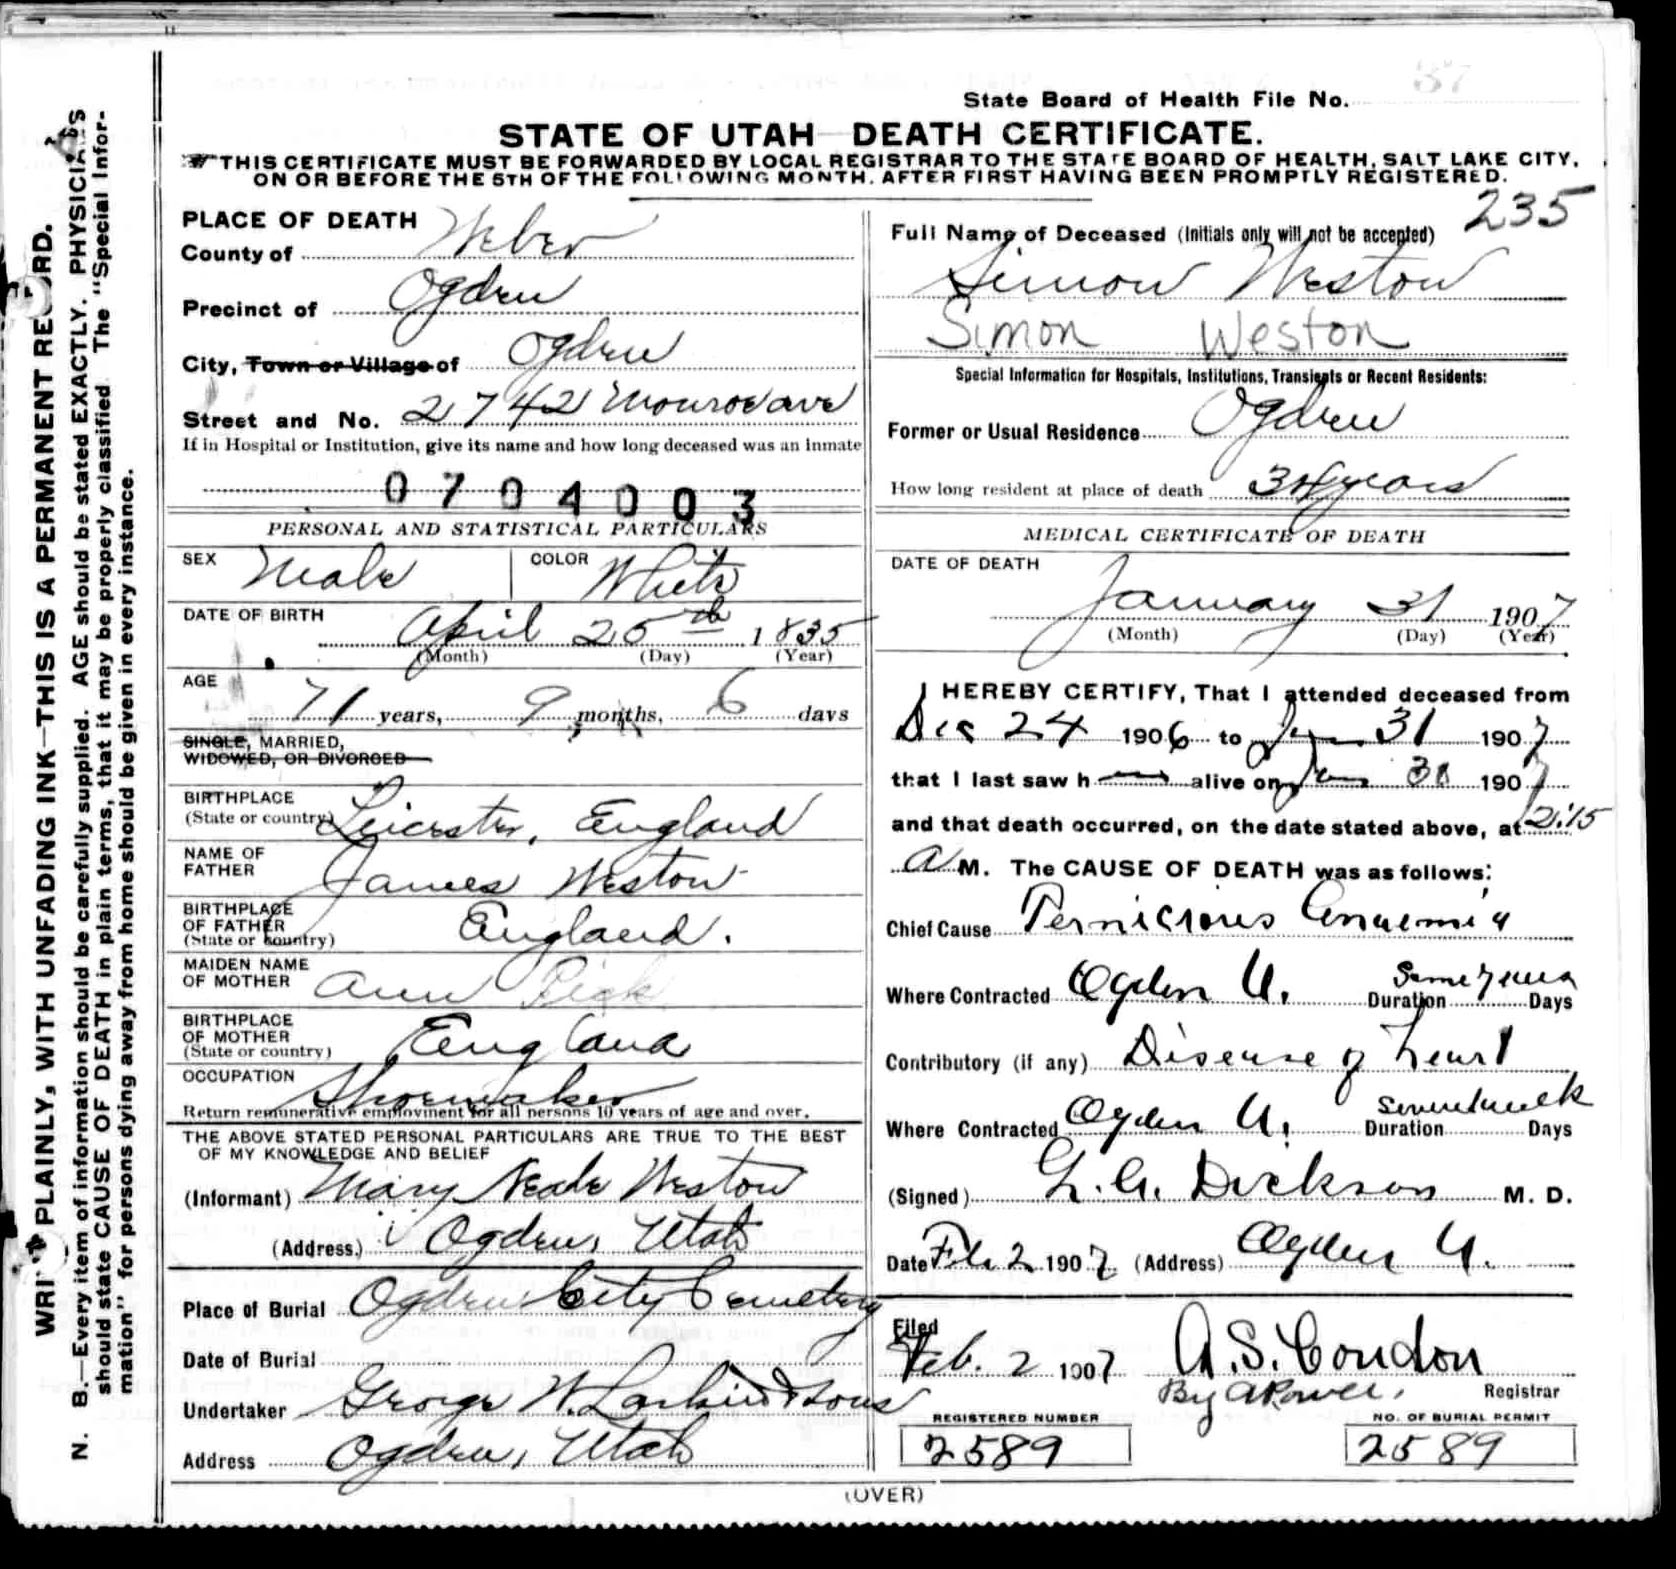 37
State Board of Health File No.
STATE OF UTAH—DEATH CERTIFICATE.
THIS CERTIFICATE MUST BE FORWARDED BY LOCAL REGISTRAR TO THE STATE BOARD OF HEALTH, SALT LAKE CITY,
ON OR BEFORE THE 5TH OF THE FOLLOWING MONTH, AFTER FIRST HAVING BEEN PROMPTLY REGISTERED.
WRITE PLAINLY, WITH UNFADING INK—THIS IS A PERMANENT RECORD.
N. B.—Every item of information should be carefully supplied. AGE should be stated EXACTLY. PHYSICIANS
should state CAUSE OF DEATH in plain terms, that it may be properly classified The "Special Infor-
mation" for persons dying away from home should be given in every instance.
PLACE OF DEATH
County of Weber
Precinct of Ogden
City, Town or Village of Ogden
Street and No. 2742 Monroe ave
If in Hospital or Institution, give its name and how long deceased was an inmate
0704003
PERSONAL AND STATISTICAL PARTICULARS
SEX Male COLOR White
DATE OF BIRTH
April 25th 1835
(Month) (Day) (Year)
AGE
71 years, 9 months, 6 days
SINGLE, MARRIED,
WIDOWED, OR DIVORCED
BIRTHPLACE
(State or country) Leicester, England
NAME OF
FATHER James Weston
BIRTHPLACE
OF FATHER England.
(State or country)
MAIDEN NAME
OF MOTHER Ann Pick
BIRTHPLACE
OF MOTHER England
(State or country)
OCCUPATION Shoemaker
Return remunerative employment for all persons 10 years of age and over.
THE ABOVE STATED PERSONAL PARTICULARS ARE TRUE TO THE BEST
OF MY KNOWLEDGE AND BELIEF
(Informant) Mary Neale Weston
(Address.) Ogden, Utah
Place of Burial Ogden City Cemetery
Date of Burial
Undertaker George W. Larkin & Sons
Address Ogden, Utah
235
Full Name of Deceased (Initials only will not be accepted)
Simon Weston
Simon Weston
Special Information for Hospitals, Institutions, Transients or Recent Residents:
Former or Usual Residence Ogden
How long resident at place of death 34 years
MEDICAL CERTIFICATE OF DEATH
DATE OF DEATH
January 31 1907
(Month) (Day) (Year)
I HEREBY CERTIFY, That I attended deceased from
Dec 24 1906 to Jan 31 1907
that I last saw h alive on Jan 1907
and that death occurred, on the date stated above, at 2:15
a M. The CAUSE OF DEATH was as follows:
Chief Cause Pernicious Anaemia
Where Contracted Ogden U. Duration some years Days
Contributory (if any) Disease of heart
Where Contracted Ogden U. Duration Days
(Signed) Dickson M. D.
Date Feb 2 1907 (Address) Ogden U.
Filed
Feb. 2 1907 A. S. Condon
By Registrar
REGISTERED NUMBER NO. OF BURIAL PERMIT
2589 2589
(OVER)